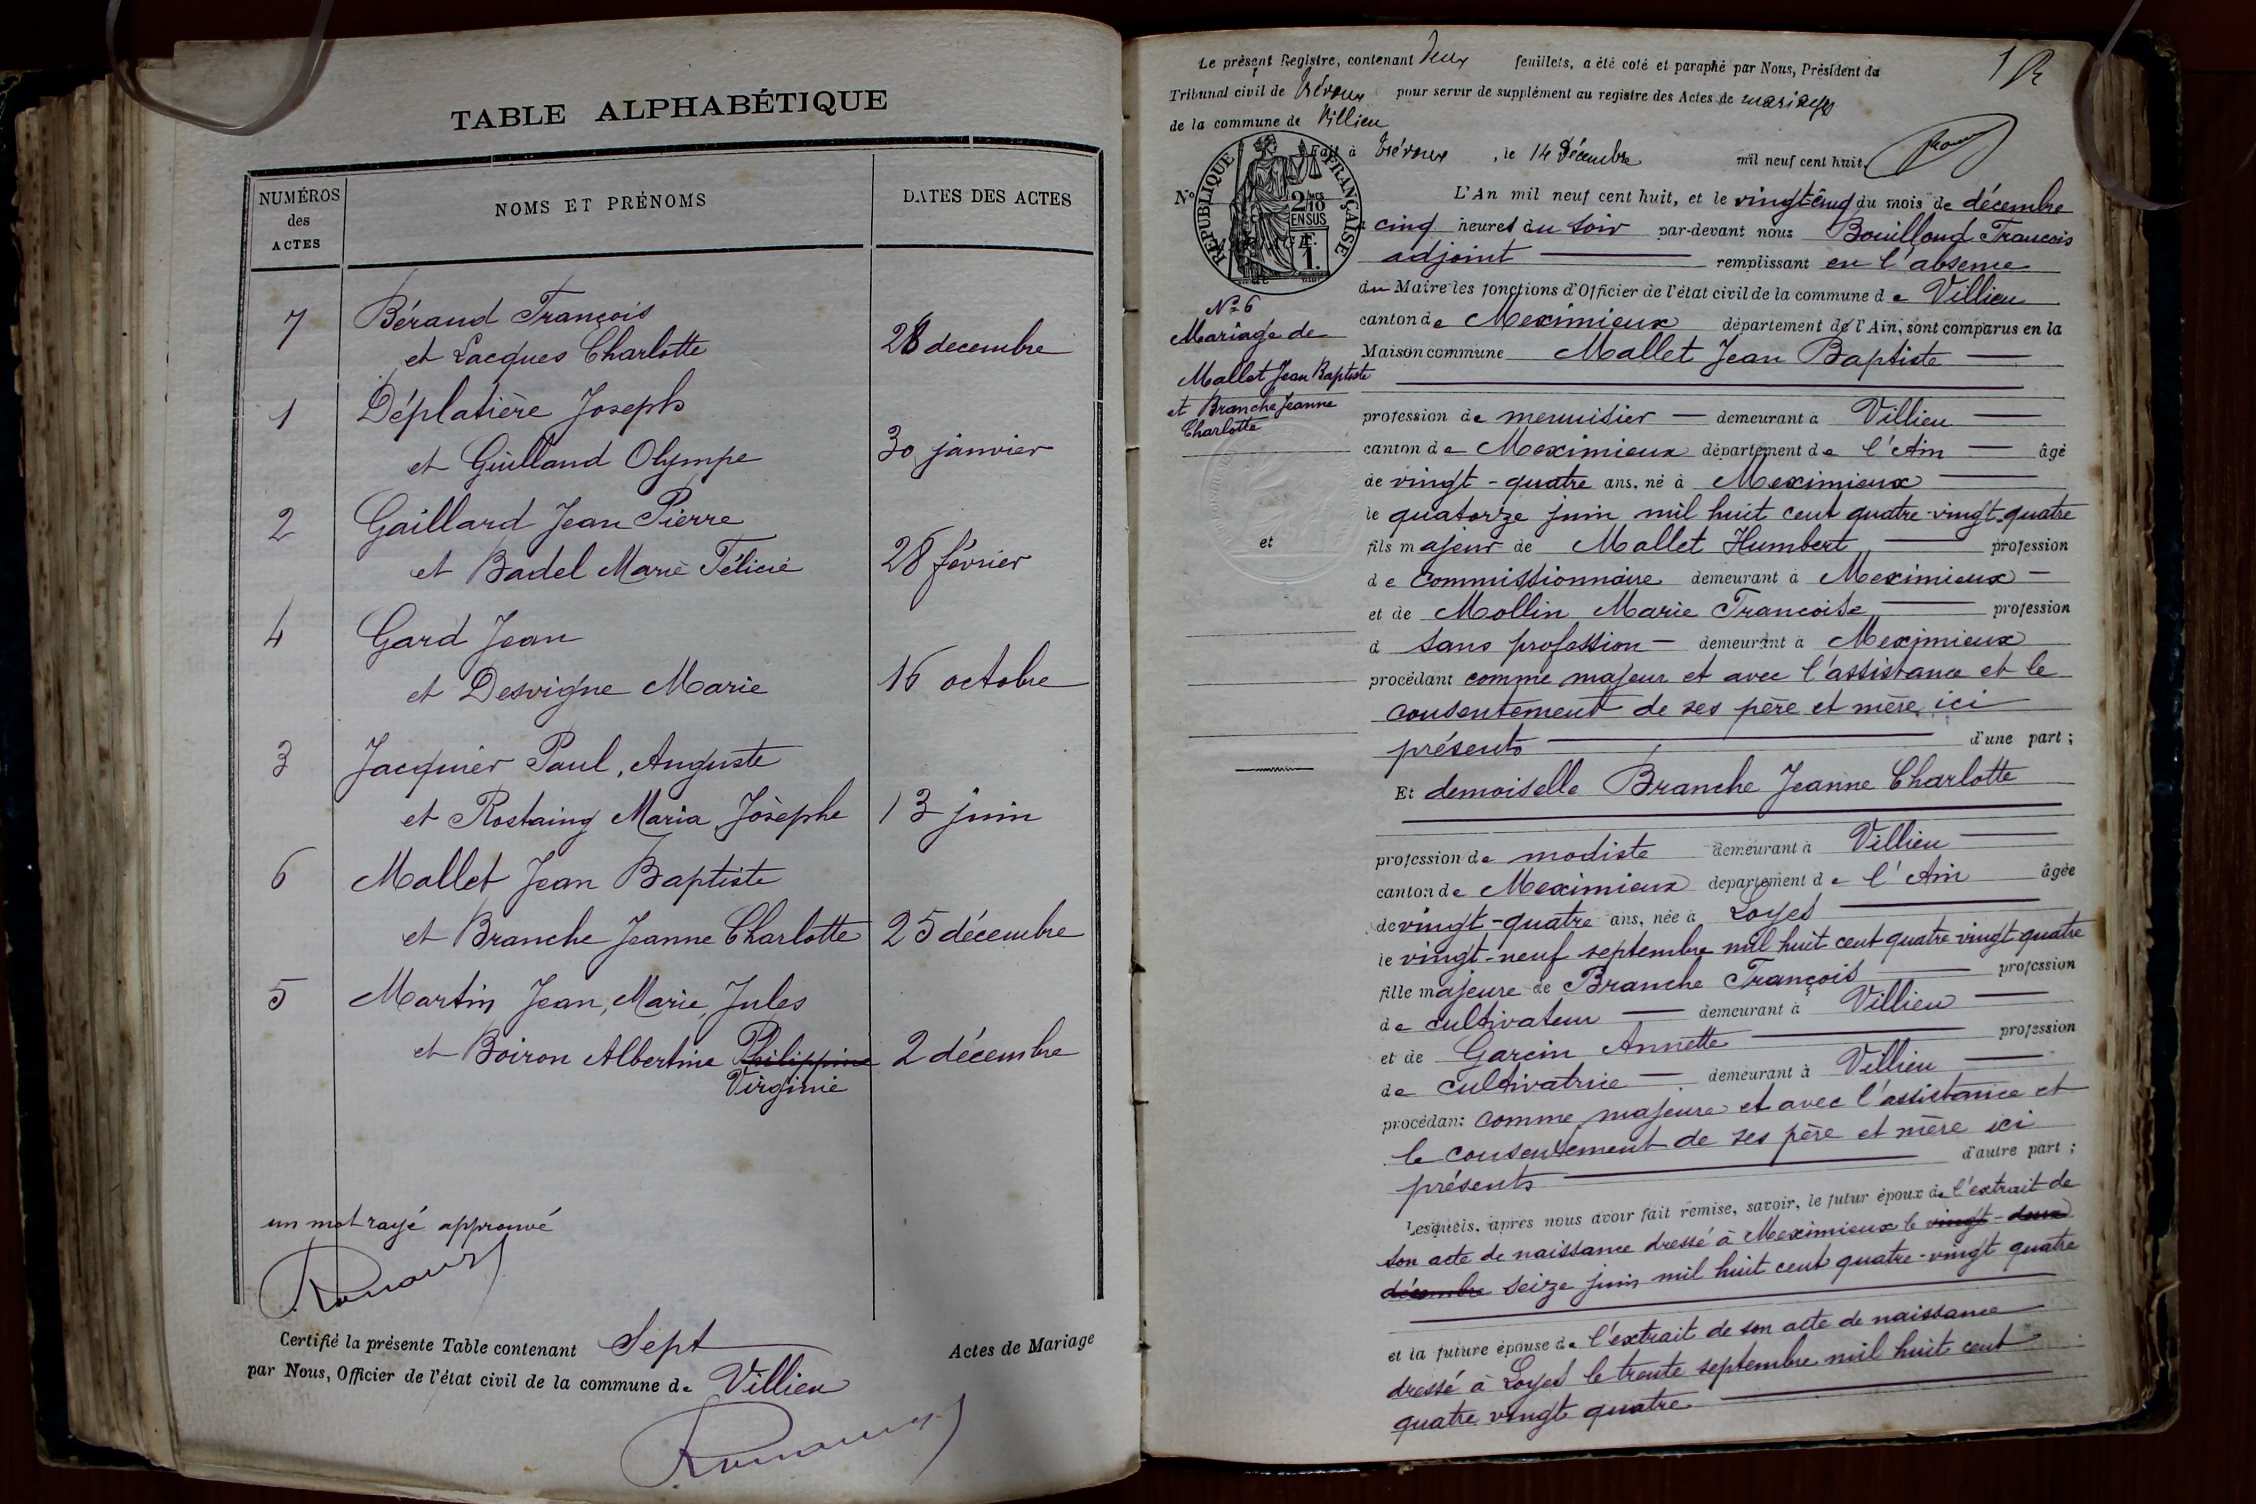 TABLE ALPHABÉTIQUE
NUMÉROS
des
ACTES
NOMS ET PRÉNOMS
DATES DES ACTES
7 Béraud François
et Lacques Charlotte 28 decembre
1 Déplatière Joseph
et Guilland Olympe 30 janvier
2 Gaillard Jean Pierre
et Badel Marie Félicie 28 février
4 Gard Jean
et Desvigne Marie 16 octobre
3 Jacquier Paul, Auguste
et Rostaing Maria Josèphe 13 juin
6 Mallet Jean Baptiste
et Branche Jeanne Charlotte 25 décembre
5 Martin Jean, Marie, Jules
et Boiron Albertine Philippine 2 décembre
Virginie
un mot rayé approuvé
Certifié la présente Table contenant Sept Actes de Mariage
par Nous, Officier de l'état civil de la commune de Villieu
1
Le présent Registre, contenant deux feuillets, a été coté et paraphé par Nous, Président du
Tribunal civil de Trévoux pour servir de supplément au registre des Actes de mariages
de la commune de Villieu
Fait à Trévoux, le 14 Décembre mil neuf cent huit.
RÉPUBLIQUE FRANÇAISE
2/10
EN SUS
1
N°
L'An mil neuf cent huit, et le vingt-cinq du mois de décembre
cinq heures du soir par-devant nous Bouilloud François
adjoint remplissant en l'absence
du Maire les fonctions d'Officier de l'état civil de la commune de Villieu
canton de Meximieux département de l'Ain, sont comparus en la
Maison commune Mallet Jean Baptiste
N° 6
Mariage de
Mallet Jean Baptiste
et Branche Jeanne
Charlotte
et
profession de menuisier demeurant à Villieu
canton de Meximieux département de l'Ain âgé
de vingt-quatre ans, né à Meximieux
le quatorze juin mil huit cent quatre-vingt-quatre
fils majeur de Mallet Humbert profession
de commissionnaire demeurant à Meximieux
et de Mollin Marie Francoise profession
d sans profession demeurant à Meximieux
procédant comme majeur et avec l'assistance et le
consentement de ses père et mère ici
présents d'une part ;
Et demoiselle Branche Jeanne Charlotte
profession de modiste demeurant à Villieu
canton de Meximieux département de l'Ain âgée
de vingt-quatre ans, née à Loyes
le vingt-neuf septembre mil huit cent quatre vingt quatre
fille majeure de Branche François profession
de cultivateur demeurant à Villieu
et de Garcin Annette profession
de cultivatrice demeurant à Villieu
procédant comme majeure et avec l'assistance et
le consentement de ses père et mère ici
présents d'autre part ;
Lesquels, après nous avoir fait remise, savoir, le futur époux de l'extrait de
son acte de naissance dressé à Meximieux le vingt-deux
décembre seize juin mil huit cent quatre-vingt quatre
et la future épouse de l'extrait de son acte de naissance
dressé à Loyes le trente septembre mil huit cent
quatre vingt quatre